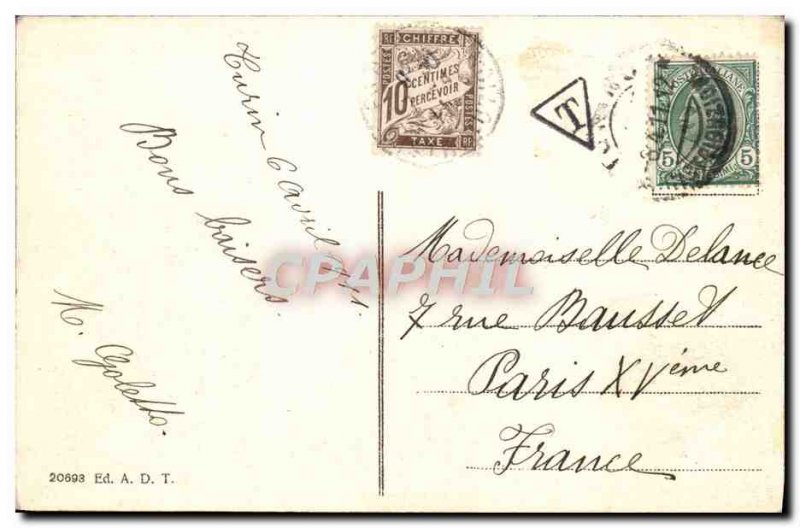 CHIFFRE
POSTES
RF
10
CENTIMES
A
PERCEVOIR
POSTES
TAXE
RF
T
5
5
Turin 6 avril 1911
Bons baisers.
CPAPHIL
Mademoiselle Delance
7 rue Bausset
Paris XVème
France
20693 Ed. A. D. T.